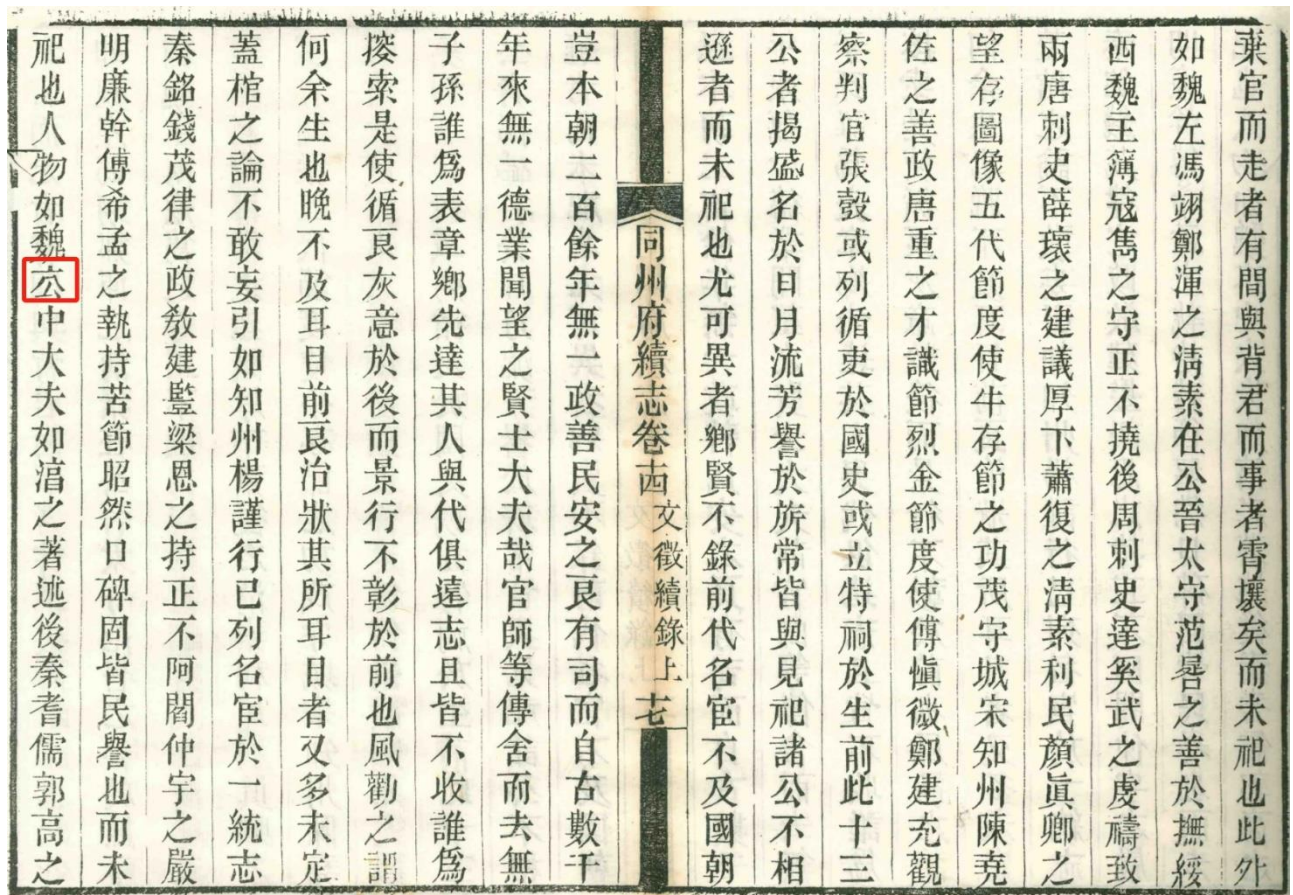 棄官而走者有間與背君而事者霄壤矣而未祀也此外
如魏左馮翊鄭渾之淸素在公晉太守范晷之善於撫綏
西魏主簿寇雋之守正不撓後周刺史達奚武之虔禱致
兩唐刺史薛瓌之建議厚下蕭復之淸素利民顏眞卿之
望存圖像五代節度使牛存節之功茂守城宋知州陳堯
佐之善政唐重之才識節烈金節度使傅愼微鄭建充觀
察判官張瑴或列循吏於國史或立特祠於生前此十三
公者揭盛名於日月流芳譽於旂常皆與見祀諸公不相
遜者而未祀也尤可異者鄉賢不錄前代名宦不及國朝
同州府續志卷十四 文徵續錄上 十七
豈本朝二百餘年無一政善民安之良有司而自古數千
年來無一德業聞望之賢士大夫哉官師等傳舍而去無
子孫誰爲表章鄉先達其人與代俱遠志且皆不收誰爲
搜索是使循良灰意於後而景行不彰於前也風勸之謂
何余生也晚不及耳目前良治狀其所耳目者又多未定
蓋棺之論不敢妄引如知州楊謹行已列名宦於一統志
秦銘錢茂律之政敎建監梁恩之持正不阿閻仲宇之嚴
明廉幹傅希孟之執持苦節昭然口碑固皆民譽也而未
祀也人物如魏公中大夫如淳之著述後秦耆儒郭高之